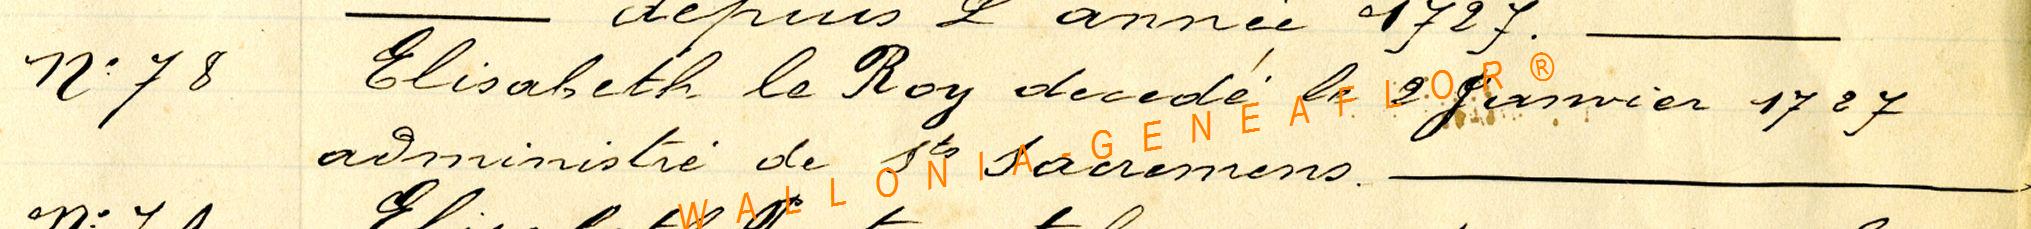 depuis L'année 1727.
N° 78 Elisabeth le Roy decedé le 2 Janvier 1727
administré de Sts Sacremens.
WALLONIA-GENEAFLOR®